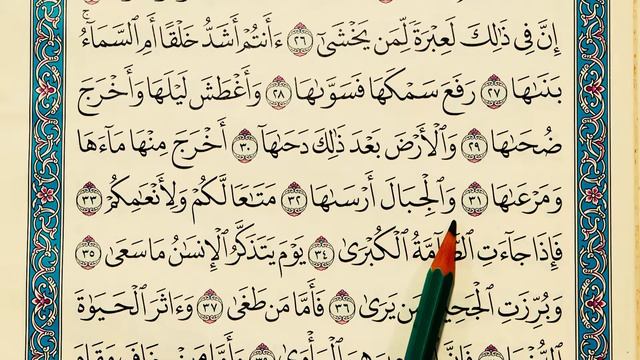 إِنَّ فِى ذَٰلِكَ لَعِبْرَةً لِّمَن يَخْشَىٰٓ ٢٦ ءَأَنتُمْ أَشَدُّ خَلْقًا أَمِ ٱلسَّمَآءُ ۚ
بَنَىٰهَا ٢٧ رَفَعَ سَمْكَهَا فَسَوَّىٰهَا ٢٨ وَأَغْطَشَ لَيْلَهَا وَأَخْرَجَ
ضُحَىٰهَا ٢٩ وَٱلْأَرْضَ بَعْدَ ذَٰلِكَ دَحَىٰهَآ ٣٠ أَخْرَجَ مِنْهَا مَآءَهَا
وَمَرْعَىٰهَا ٣١ وَٱلْجِبَالَ أَرْسَىٰهَا ٣٢ مَتَٰعًا لَّكُمْ وَلِأَنْعَٰمِكُمْ ٣٣
فَإِذَا جَآءَتِ ٱلطَّآمَّةُ ٱلْكُبْرَىٰ ٣٤ يَوْمَ يَتَذَكَّرُ ٱلْإِنسَٰنُ مَا سَعَىٰ ٣٥
وَبُرِّزَتِ ٱلْجَحِيمُ لِمَن يَرَىٰ ٣٦ فَأَمَّا مَن طَغَىٰ ٣٧ وَءَاثَرَ ٱلْحَيَوٰةَ
ٱلدُّنْيَا فَإِنَّ هِىَ ٱلْمَأْوَىٰ وَأَمَّا مَنْ خَافَ مَقَامَ